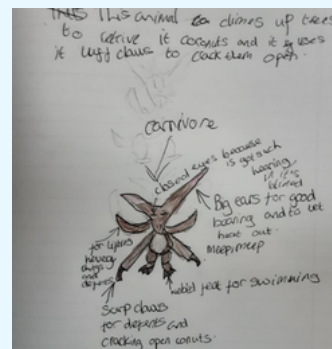 This animal climes up trees
to retrive it coconuts and it uses
it tuff claws to crack them open.
carnivore
closed eyes because
is got such
hearing
it it's
blined
Big ears for good
hearing and to vet
heat out.
meepmeep
for lifting
hevey
thigs
and
defents
webid feat for swimming
Scarp claws
for defents and
cracking open conuts.